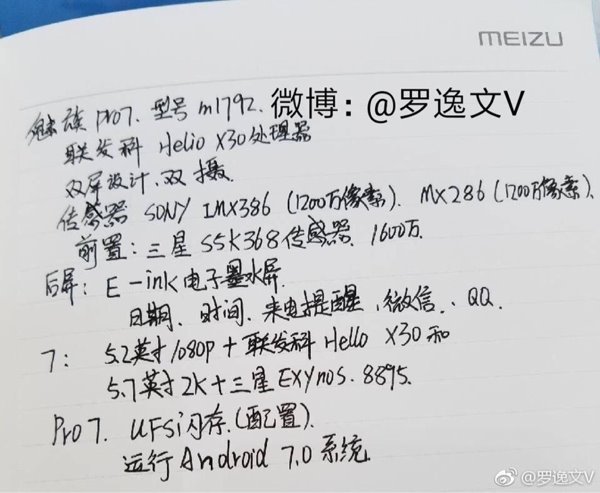 MEIZU
魅族 Pro7. 型号 m1792. 微博：@罗逸文V
联发科 Helio X30处理器
双屏设计、双摄.
传感器 SONY IMX386 (1200万像素). MX286 (1200万像素).
前置：三星 S5K368传感器. 1600万.
后屏：E-ink电子墨水屏.
日期、时间、来电提醒、微信、QQ.
7： 5.2英寸1080p + 联发科 Hello X30 和
5.7英寸2K + 三星 EXYnos. 8895.
Pro 7. UFSi闪存.(配置).
运行 Android 7.0 系统
@罗逸文V